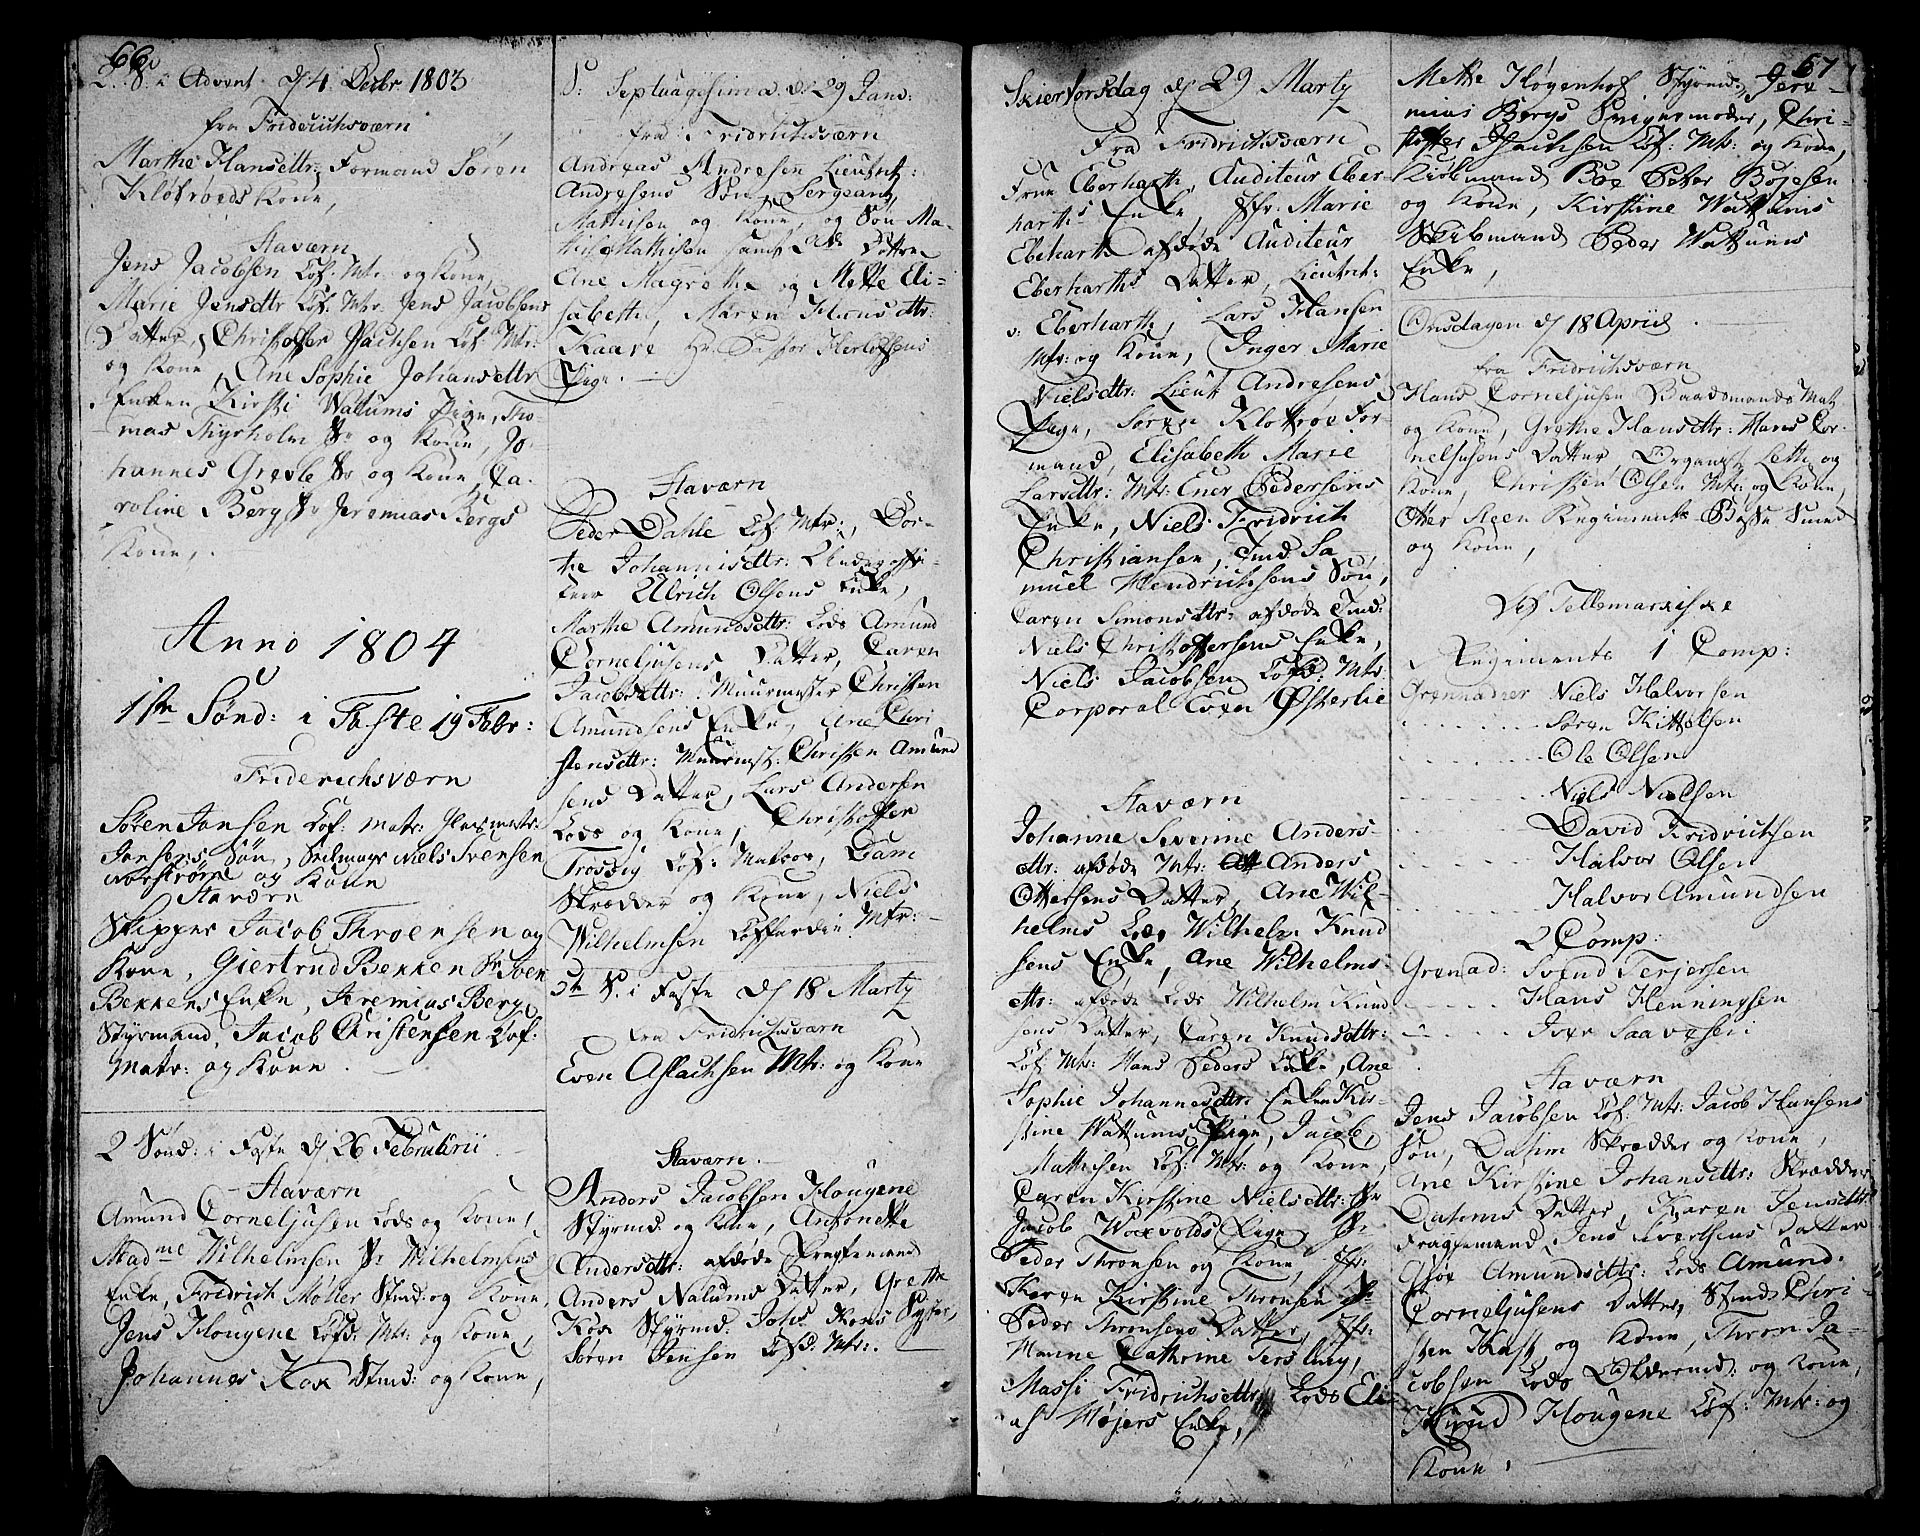 66
2. S. i Advent d 4 Decbr 1803
fra Friderichsværn
Marthe Hansdttr: Formand Søren
Kløfroeds Kone,
Staværn
Jens Jacobsen Cof: Mtr: og Kone,
Marie Jensdttr Cof: Mtr: Jens Jacobsens
Datter, Christoffer Isachsen Cof: Mtr:
og Kone, Ane Sophie Johansdttr
Enken Kirsti Watums Pige, Tho-
mas Thyrholm Sr og Kone, Jo-
hannes Greble Sr og Kone, Ca-
roline Berg Sr Jeremias Bergs
Kone,
Anno 1804
1ste Sønd: i Faste 19 Febr:
Friderichsværn
Søren Jansen Cof: Matr: Glasmestr:
Jansens Søn, Seilmager Niels Svensen
Norstrøm og Kone
Staværn
Skipper Jacob Throensen og
Kone, Giertrud Bekken Sr Iver
Bekkens Enke, Jeremias Berg
Styrmand, Jacob Christensen Cof:
Matr: og Kone
2 Sønd: i Faste d 26 Februarii
Staværn
Amund Corneljusen Lods og Kone,
Madme Wilhelmsen Sr Wilhelmsens
Enke, Fridrich Møller Stmd: og Kone,
Jens Hougene Cofd: Mtr: og Kone,
Johannes Kox Stmd: og Kone,
S: Septuagesima d 29 Janv:
fra Fridrichsværn
Andreas Andresen Lieutnt:
Andresens Søn, Sergeant
Mathisen og Kone, og Søn Ma-
this Mathisen samt 2de Døttre
Ane Magrethe og Mette Eli-
sabeth, Maren Hansdttr:
Kaare Hr. Pastor Hertofsens
Pige.
Staværn
Peder Dahle Cof: Mtr:, Dor-
the Johannisdttr: Underoffi-
ceer Ulrich Olsens Enke,
Marthe Amundsdttr: Lods Amund
Corneljusens Datter, Caren
Jacobsdttr: Muurmester Christen
Amundsens Enke, Ane Chri
stensdttr: Muurmest: Christen Amund
sens Datter, Lars Andersen
Lods og Kone, Christoffer
Trosvig Cof: Matros, Dam
Skrædder og Kone, Niels
Wilhelmsen Cofferdie Mtr:
5te S. i Faste d 18 Marty
fra Fridrichsværn
Even Aslachsen Mtr: og Kone
Staværn
Anders Jacobsen Hougene
Styrmd. og Kone, Antonette
Andersdttr: afdøde Fragtemand
Anders Nalums Datter, Grethe
Kox Styrmd: Johs Koxs Syster,
Søren Jensen Cofd. Mtr:
Skiertorsdag d 29 Marty
Fra Fridrichsværn
Frue Eberharth, Auditeur Eber-
harths Enke, Jfr. Marie
Eberharth afdøde Auditeur
Eberharths Datter, Lieutnt:
v: Eberharth, Lars Hansen
Mtr: og Kone, Inger Marie
Nielsdttr: Lieut Andresens
Pige, Søren Kløftrøe For-
mand, Elisabeth Marie
Larsdttr: Mtr: Ener Pedersens
Enke, Niels Fridrich
Christiansen, Tmd Sa
muel Hendrichsens Søn,
Caren Simonsdttr: afdøde Tmd:
Niels Christoffersens Enke,
Niels Jacobsen Cofd: Mtr:
Corporal Even Østerlie
Staværn
Johanne Severine Anders-
dttr: afdøde Mtr: Anders
Ottersens Datter, Ane Wil-
helms Lods Wilhelm Knud
sens Enke, Ane Wilhelms-
dttr: afdøde Lods Wilhelm Knud
sens Datter, Caren Knudsdttr:
Cof: Mtr: Hans Peders Enke, Ane
Sophie Johannesdttr: Enken Kir-
stine Wattums Pige, Jacob
Mathisen Cof: Mtr: og Kone,
Caren Kirstine Nielsdttr: Sr
Jacob Woxvolds Pige, Sr
Peder Thronsen og Kone, Jfr:
Karen Kirstine Thronsen Sr
Peder Thronsens Datter, Jfr:
Hanne Cathrine Tersling,
Massi Fridrichsdttr Lods Eli-
as Høyers Enke,
67
Mette Høgenhof Styrmd: Jere-
mias Bergs Svigermoder, Chri-
stoffer Isachsen Cof: Mtr: og Kone,
Kirkemand Boe Peter Bojesen
og Kone, Kirstine Wattums
Skibmand Peder Wattums
Enke,
Onsdagen d 18 April
fra Fridrichsværn
Hans Corneljusen Baadsmands Mat
og Kone, Grethe Hansdttr: Hans Cor-
neljusens Datter, Organist Leth og
Kone, Christen Olsen Mtr: og Kone,
Otter Steen Regiments Bøsse Smed
og Kone,
Ved Tellemarkiske
Regiments 1 Comp:
Grennadeer Niels Halvorsen
Søren Kittelsen
Ole Olsen
Niels Nielsen
David Fridrichsen
Halvor Olsen
Halvor Amundsen
2 Comp:
Grenad: Svend Terjersen
Hans Henningsen
Iver Saavesen
Staværn
Jens Jacobsen Cof: Mtr: Jacob Hansens
Søn, Datum Skrædder og Kone,
Ane Kirstine Johansdttr: Skrædder
Datums Datter, Karen Jensdttr
Fragtemand Jens Sivertsens Datter
Gjør Amundsdttr: Lods Amund
Corneljusens Datter, Stmd Chri-
sten Kast og Kone, Thron Ja-
cobsen Lods Oldermd: og Kone,
Knud Hougene Cof: Mtr: og
Kone,